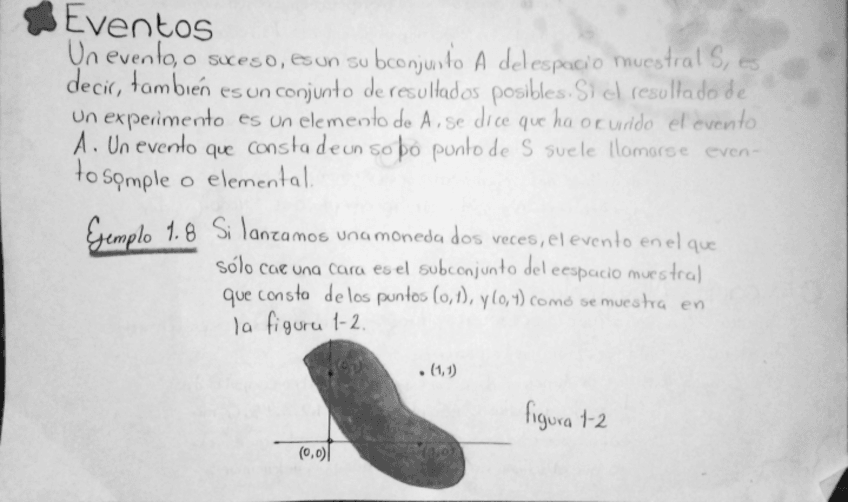 Eventos
Un evento, o suceso, es un subconjunto A del espacio muestral S, es
decir, también es un conjunto de resultados posibles. Si el resultado de
un experimento es un elemento de A, se dice que ha ocurrido el evento
A. Un evento que consta de un so po punto de S suele llamarse even-
to somple o elemental.
Ejemplo 1.8 Si lanzamos una moneda dos veces, el evento en el que
sólo cae una cara es el subconjunto del eespacio muestral
que consta de los puntos (0,1), y (0,1) como se muestra en
la figura 1-2.
(1,1)
figura 1-2
(0,0)